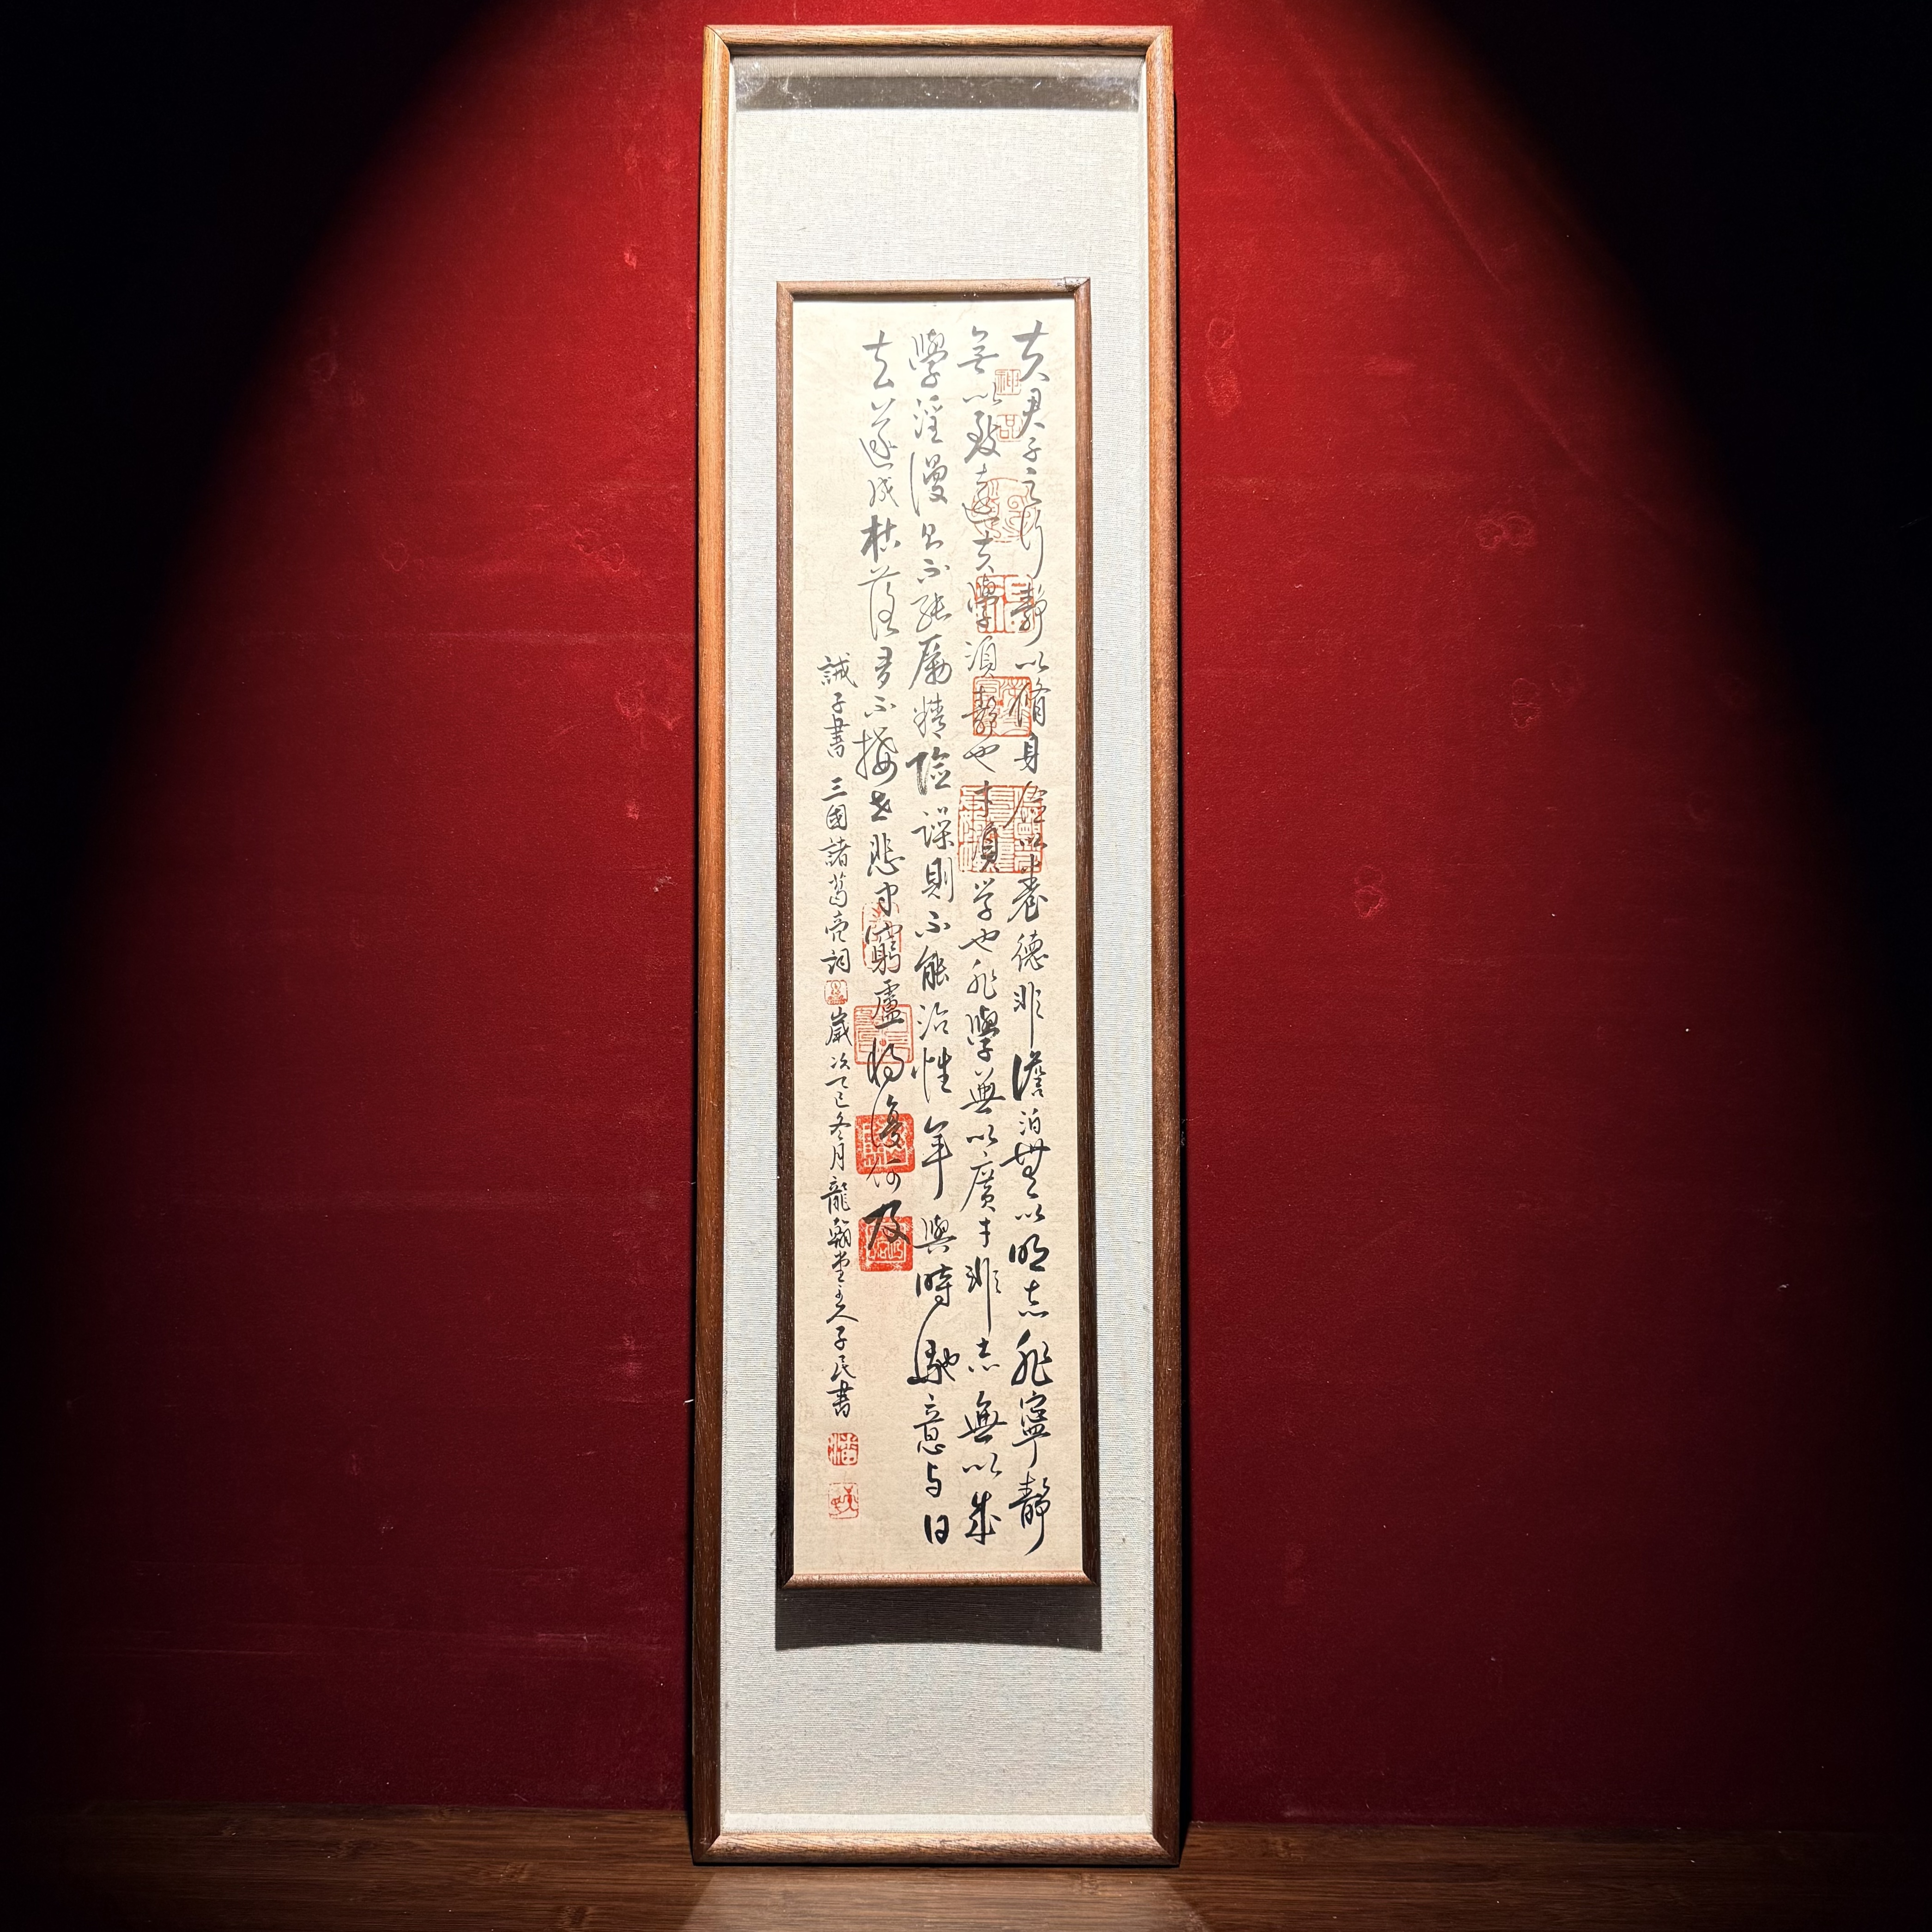 夫君子之行靜以脩身儉以養德非澹泊無以明志非寧靜
無以致遠夫學須靜也才須学也非學無以廣才非志無以成
學淫漫則不能勵精險躁則不能治性年與時馳意与日
去遂成枯落多不接世悲守窮廬將復何及
誡子書 三國諸葛亮詞 歲次乙巳冬月龍翰堂主人子民書